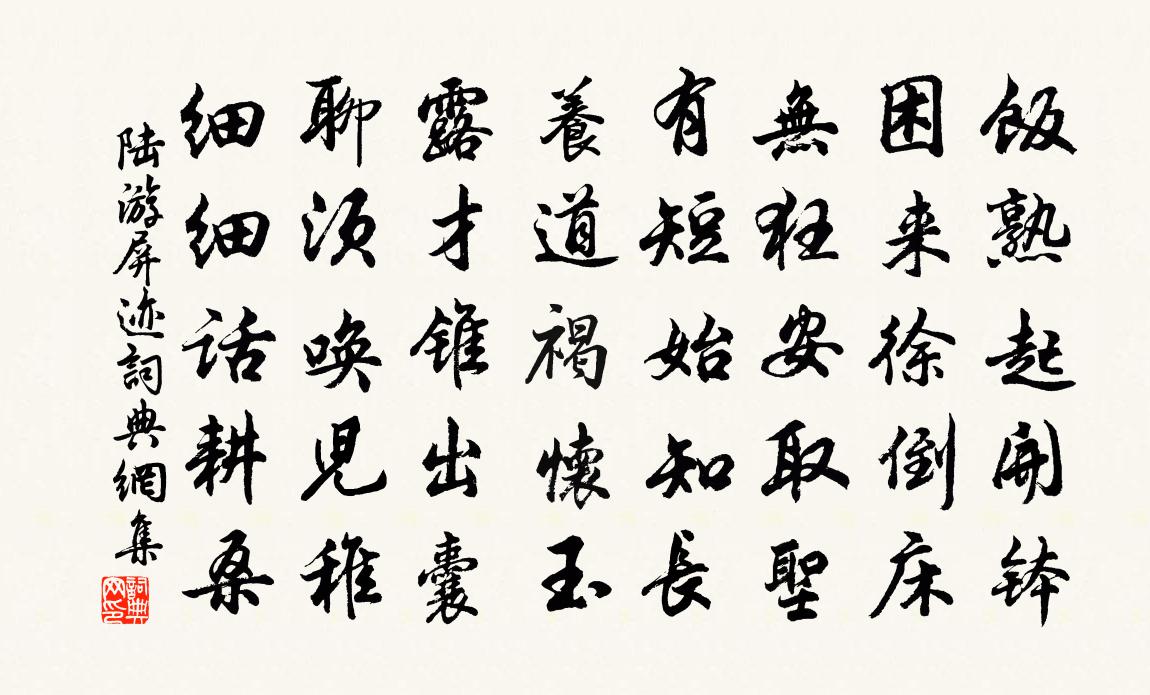 飯熟起開鉢
困来徐倒床
無狂安取聖
有短始知長
養道褐懷玉
露才錐出囊
聊須喚児稚
细细话耕桑
陆游屏迹詞典網集
詞典网印